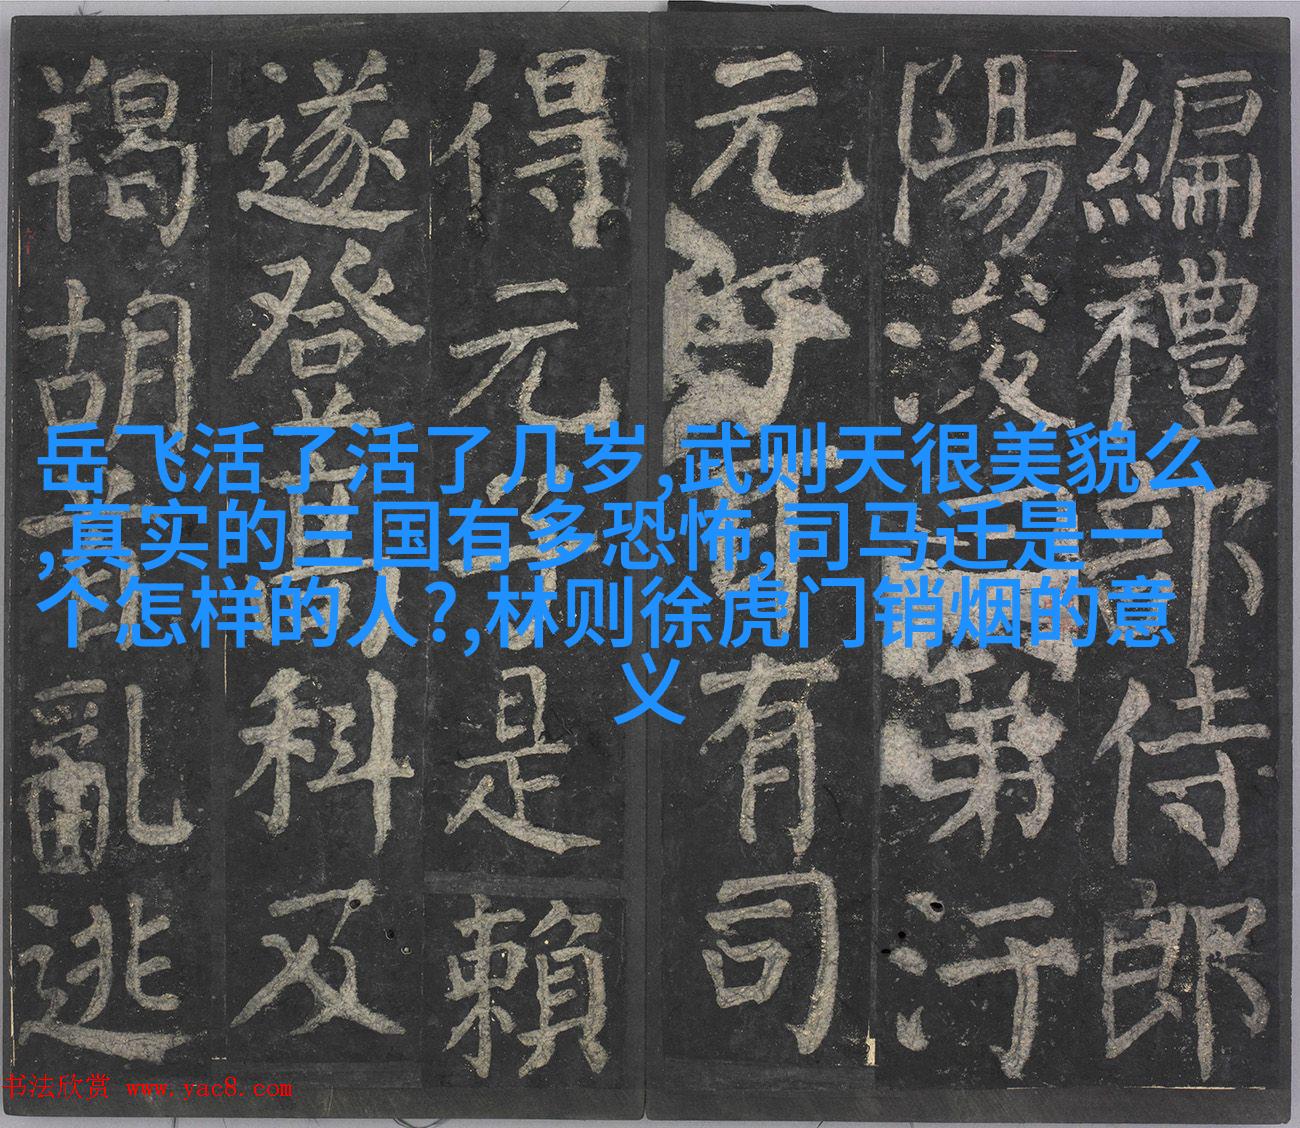 岳飞活了活了几岁,武则天很美貌么
,真实的三国有多恐怖,司马迁是一
个怎样的人?,林则徐虎门销烟的意
义
編禮部侍郎
陽浚第汙
元子耳有司
得元子是賴
遂登高科及
羯胡首亂逃
书法欣赏 www.yac8.com